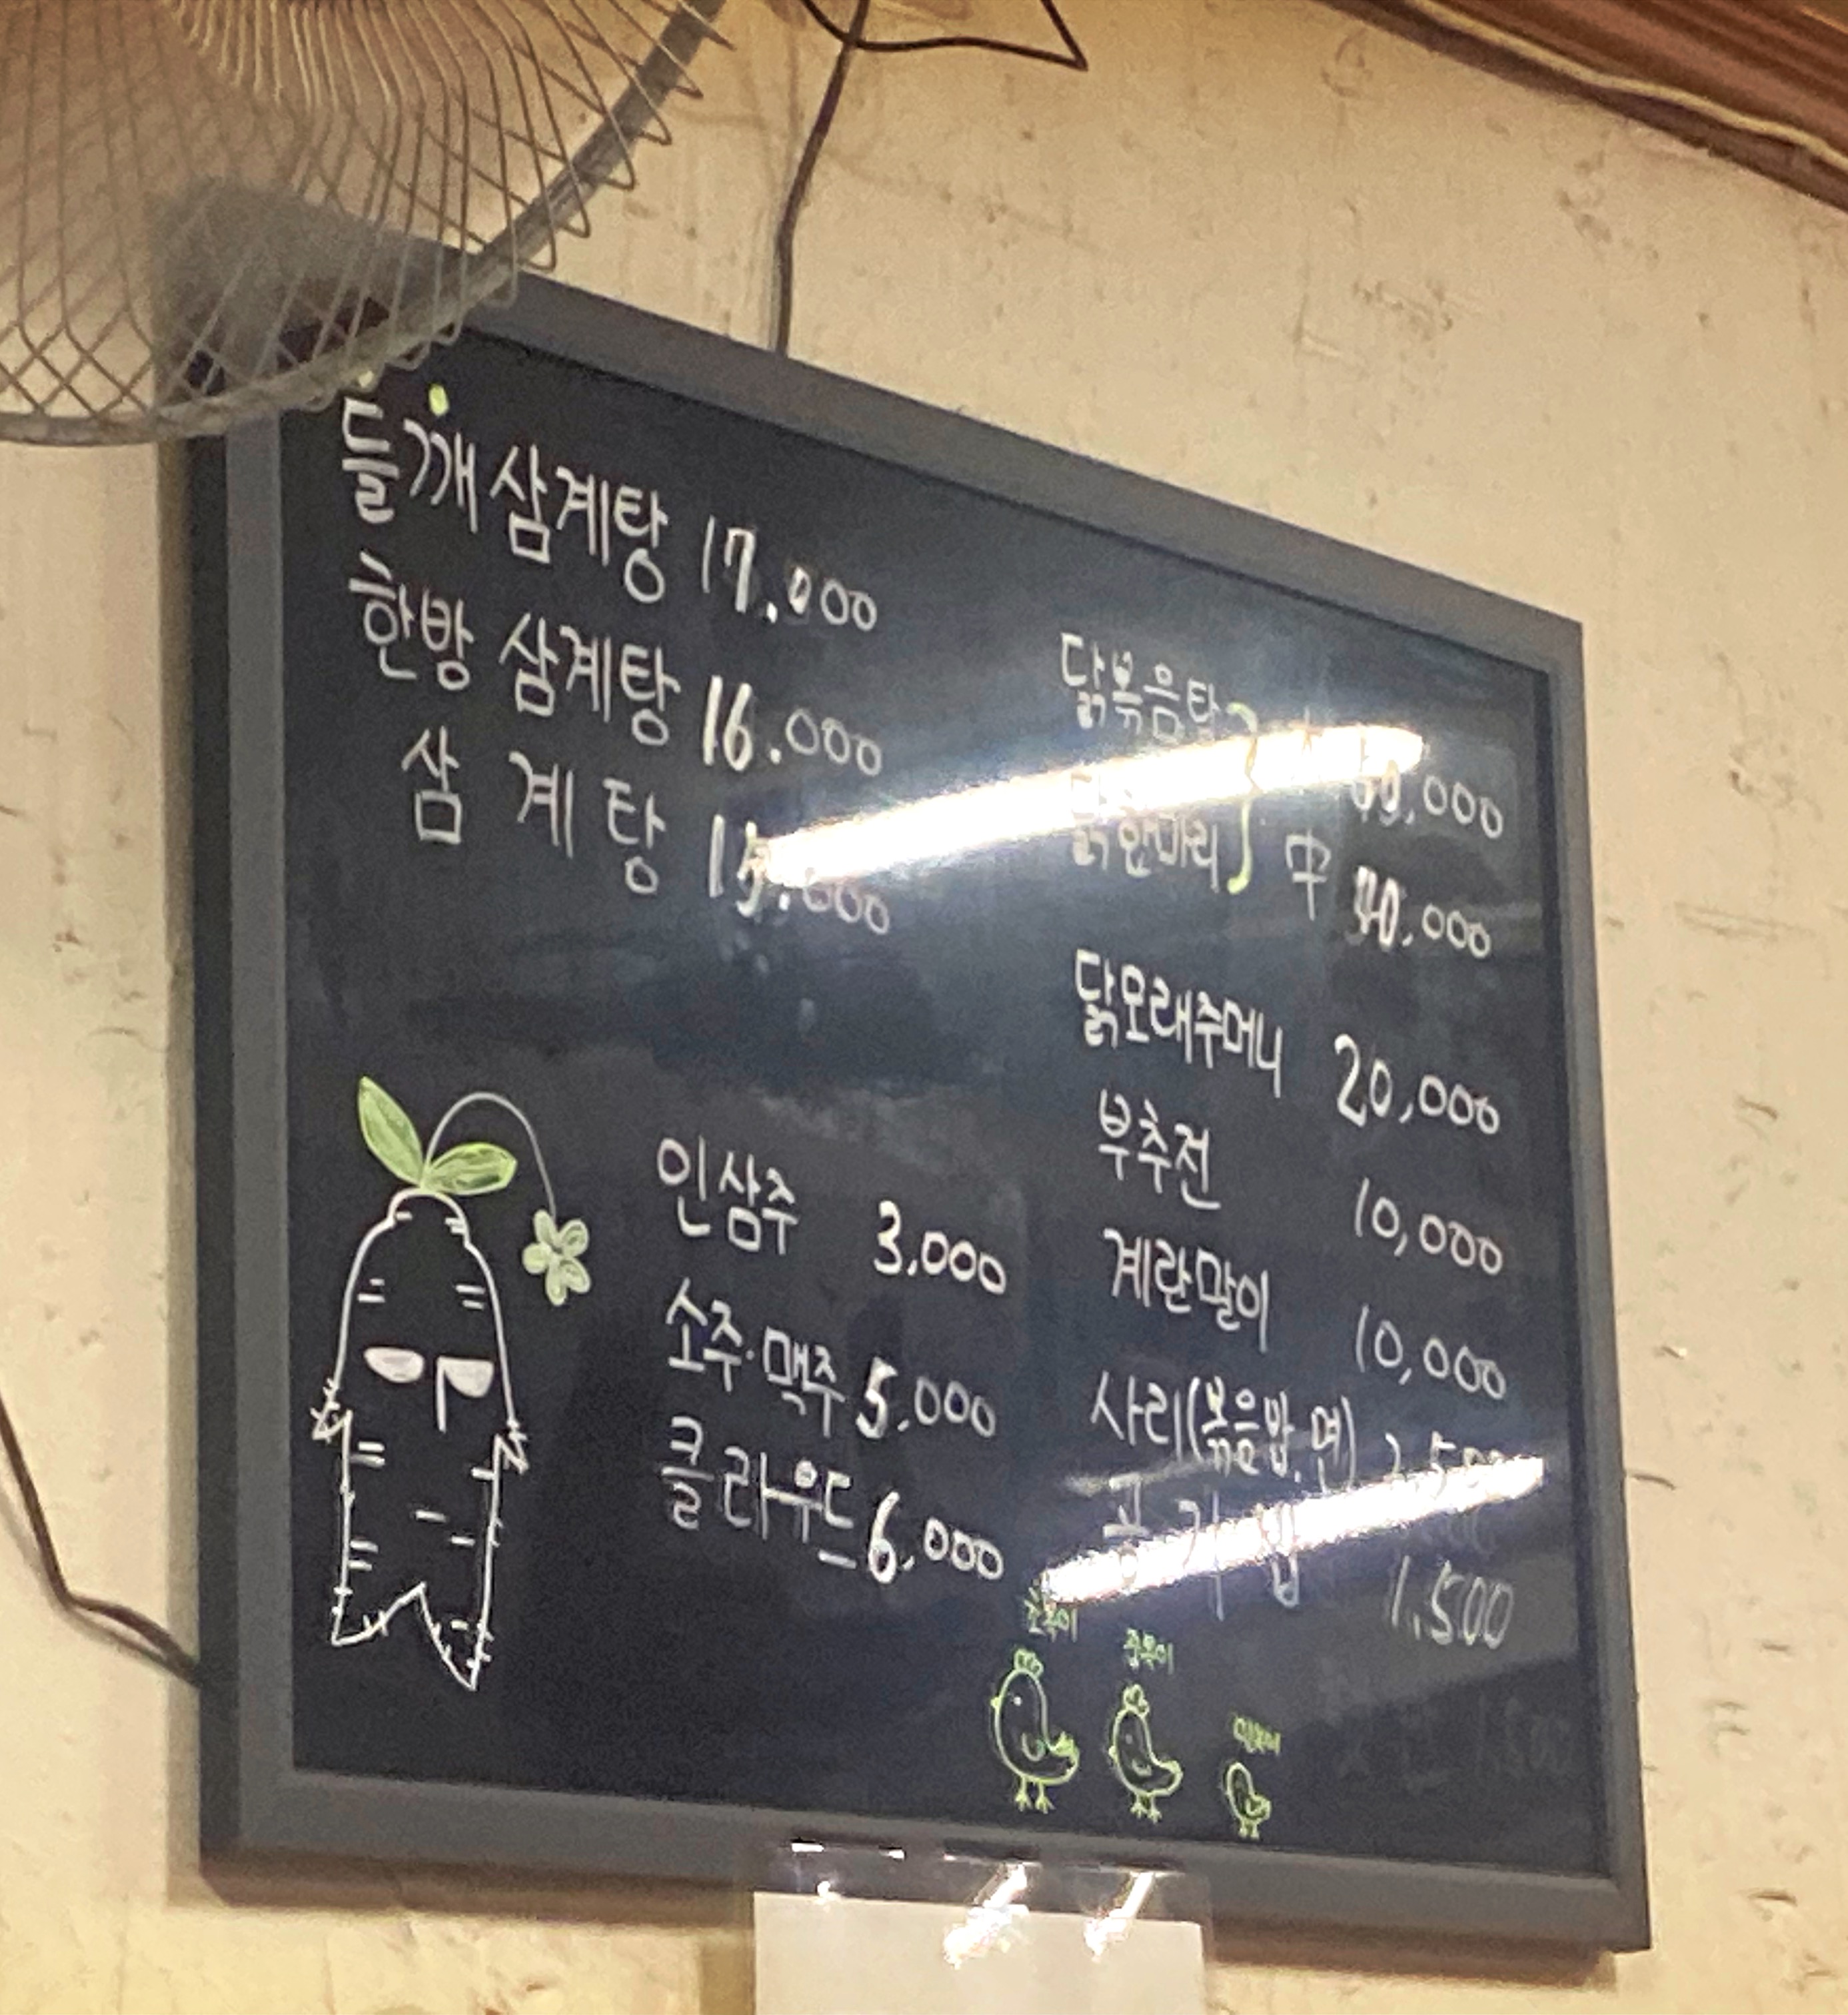 들깨삼계탕 17.000
한방 삼계탕 16.000
삼계탕 15.000
인삼주 3,000
소주·맥주 5.000
클라우드 6,000
닭볶음탕
닭한마리
中 40,000
닭모래주머니 20,000
부추전 10,000
계란말이 10,000
사리(볶음밥,면)
공기밥 1,500